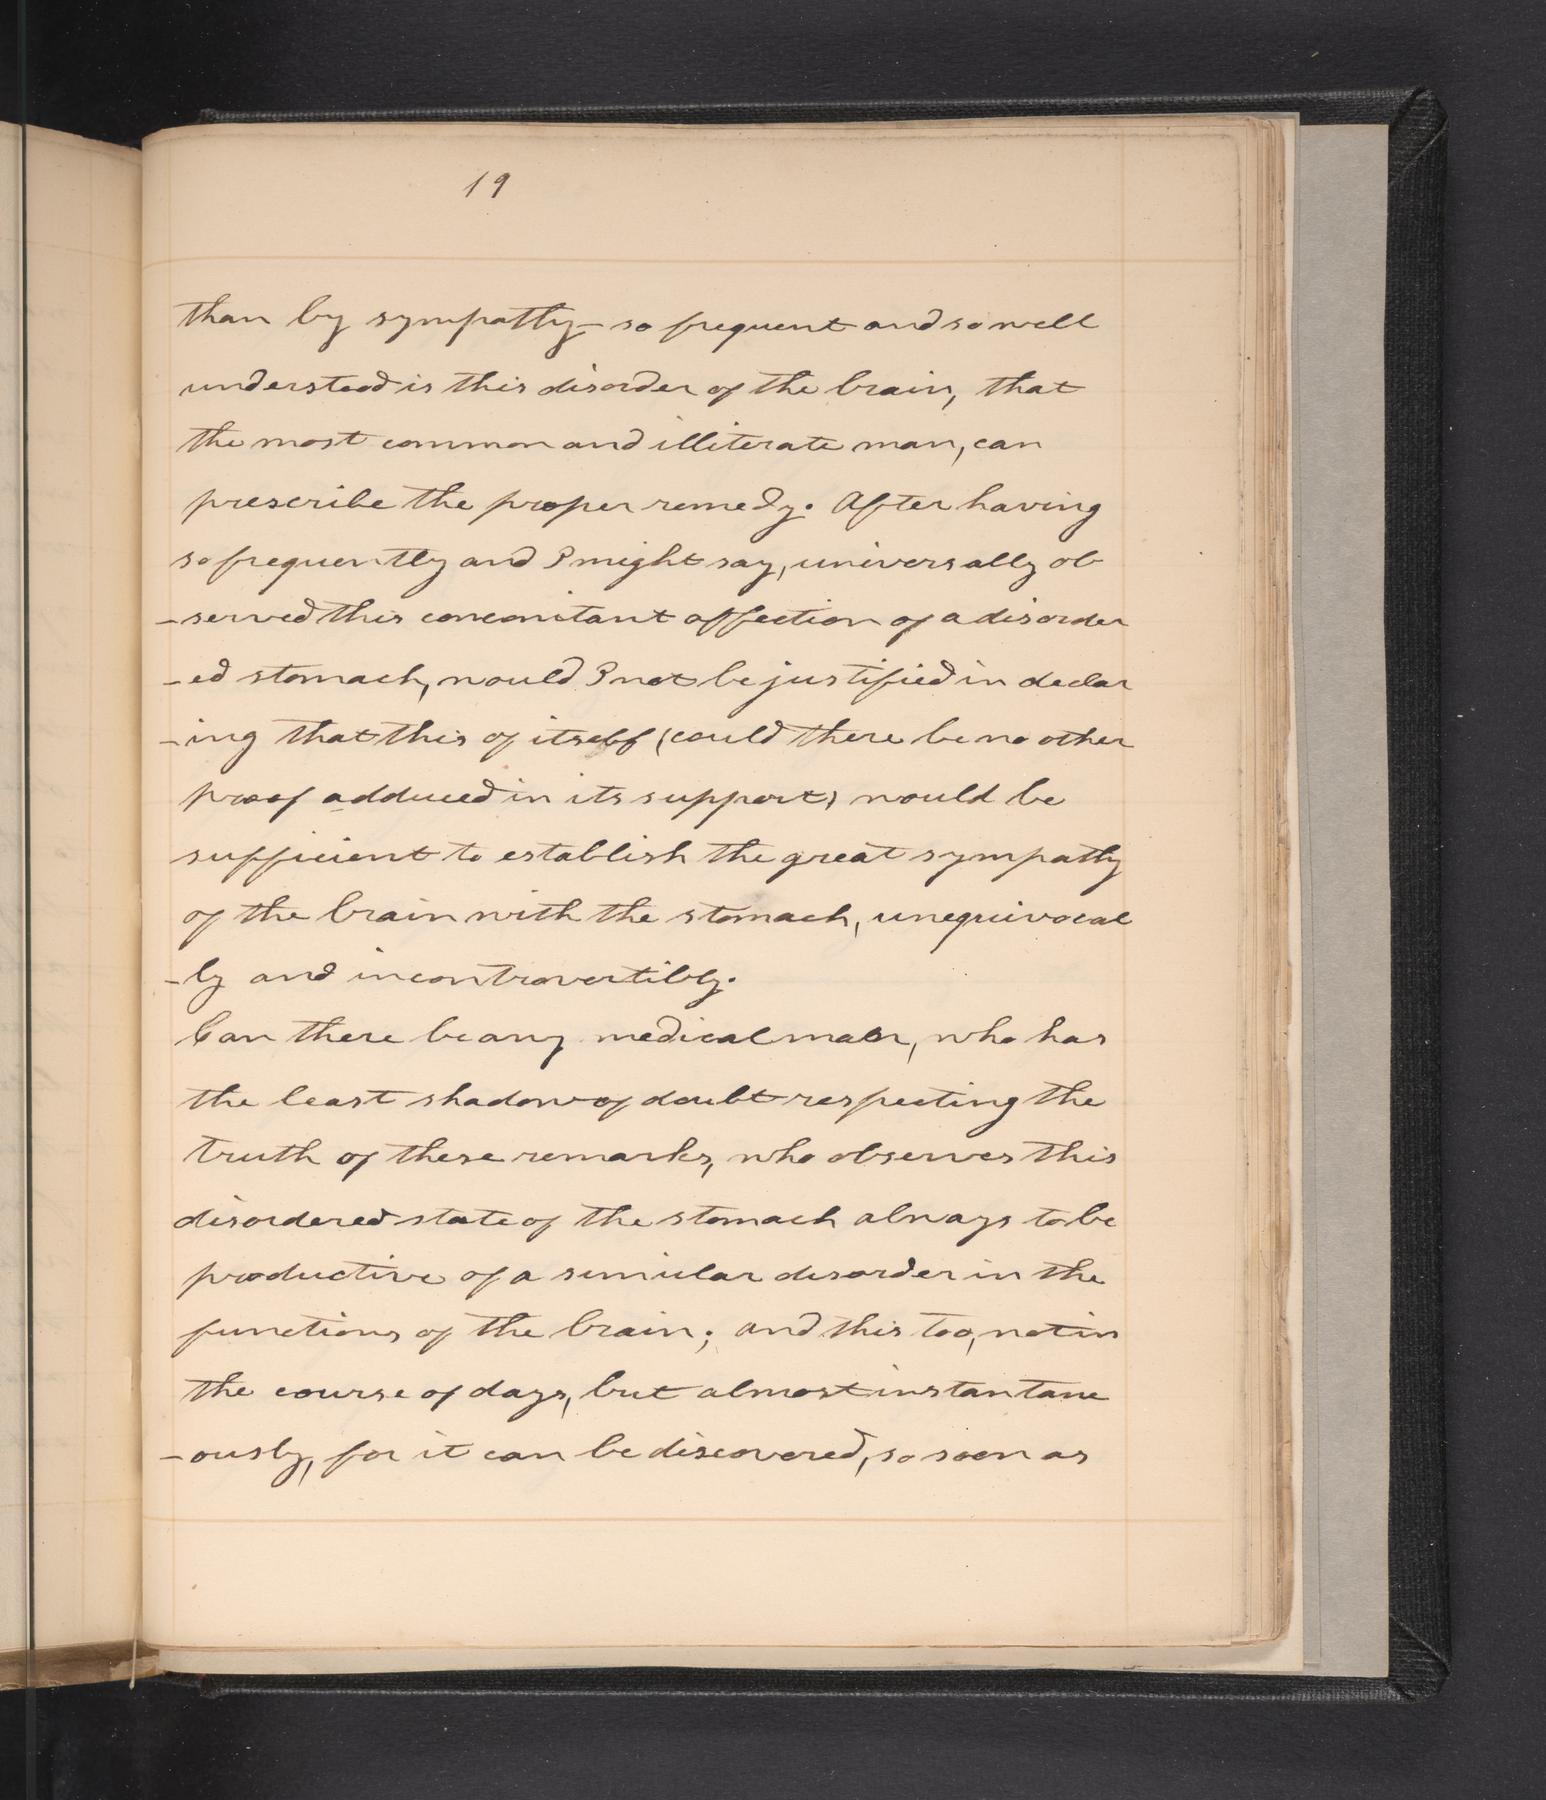 19
than by sympathy – so frequent and so well
understood is this disorder of the brain, that
the most common and illiterate man, can
prescribe the proper remedy. After having
so frequently and I might say, universally ob
-served this concomitant affection of a disorder
-ed stomach, would I not be justified in declar
-ing that this of itself (could there be no other
proof adduced in its support) would be
sufficient to establish the great sympathy
of the brain with the stomach, unequivocal
-ly and incontrovertibly.
Can there be any medical man, who has
the least shadow of doubt respecting the
truth of these remarks, who observes this
disordered state of the stomach always to be
productive of a similar disorder in the
functions of the brain; and this too, not in
the course of days, but almost instantane
-ously, for it can be discovered, so soon as